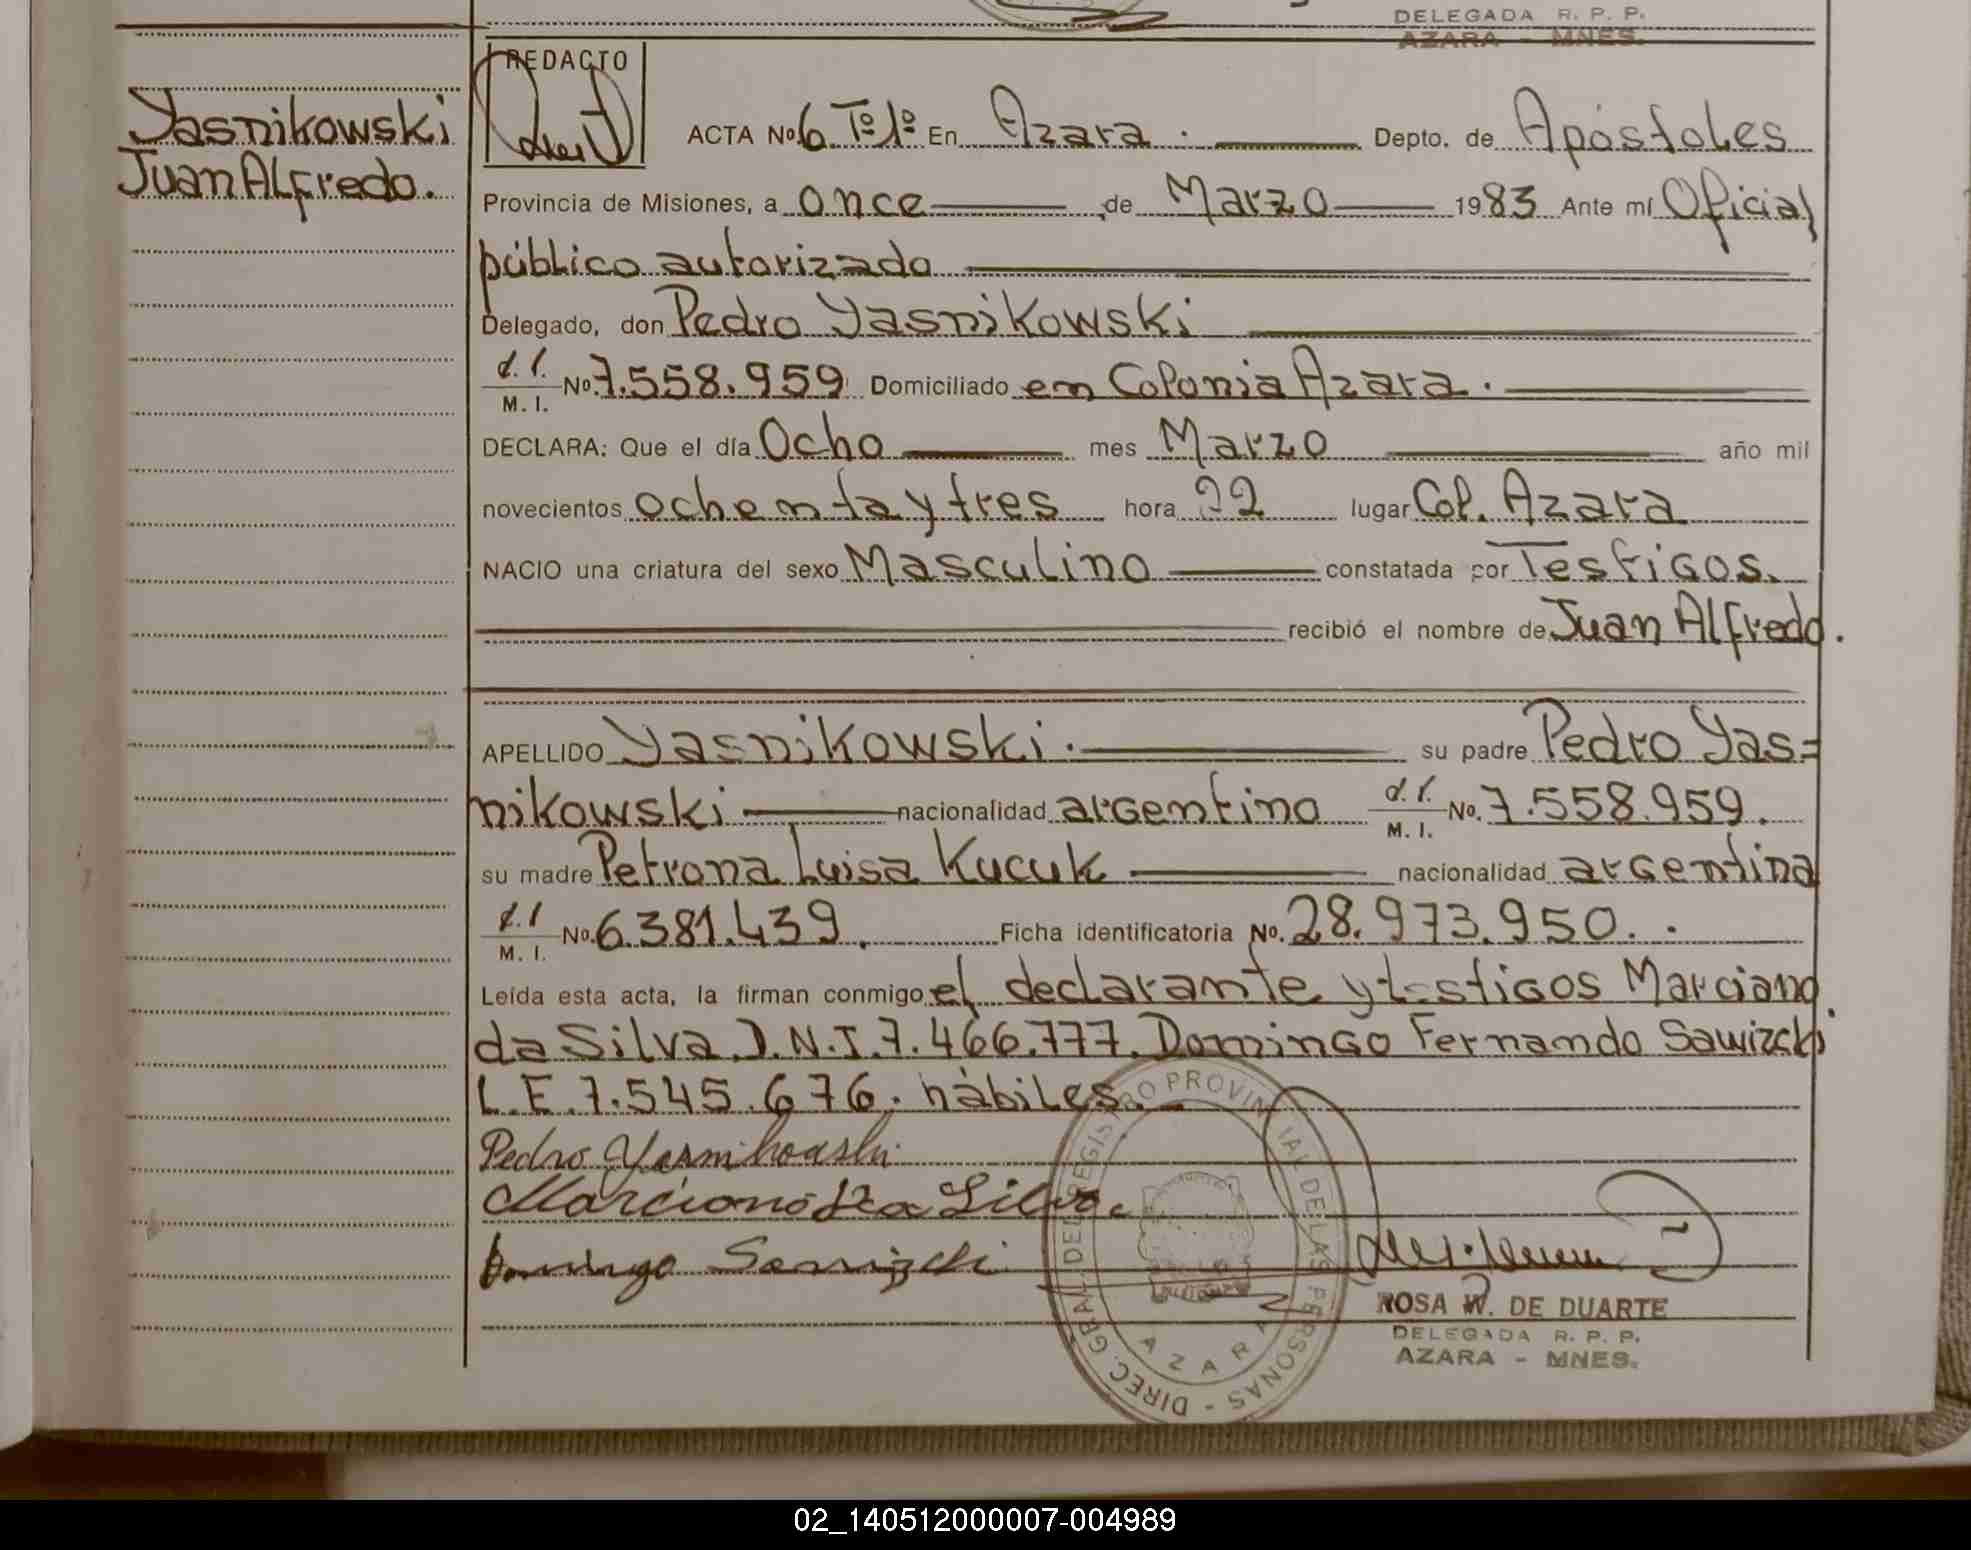 DELEGADA R. P. P.
AZARA - MNES.
REDACTO
Yasnikowski
Juan Alfredo.
ACTA No. 6 Tº 1º En Azara. Depto. de Apóstoles
Provincia de Misiones, a once de Marzo 1983 Ante mí Oficial
público autorizado
Delegado, don Pedro Yasnikowski
d.l. M. I. No. 7.558.959 Domiciliado en Colonia Azara.
DECLARA: Que el día Ocho mes Marzo año mil
novecientos ochenta y tres hora 22 lugar Col. Azara
NACIO una criatura del sexo Masculino constatada por Testigos.
recibió el nombre de Juan Alfredo.
APELLIDO Yasnikowski. su padre Pedro Yas=
nikowski nacionalidad argentino d.l. M. I. No. 7.558.959.
su madre Petrona Luisa Kucuk nacionalidad argentina
d.l M. I. No. 6.381.439. Ficha identificatoria No. 28.973.950.
Leída esta acta, la firman conmigo el declarante y testigos Marciano
da Silva D.N.I. 7.466.777. Domingo Fernando Sawizcki
L.E. 7.545.676. hábiles.
Pedro Yasnikowski
Marciano Da Silva
Domingo Sawizcki
DIREC. GRAL. DEL REGISTRO PROVINCIAL DE LAS PERSONAS -
AZARA
ROSA W. DE DUARTE
DELEGADA R. P. P.
AZARA - MNES.
02_140512000007-004989